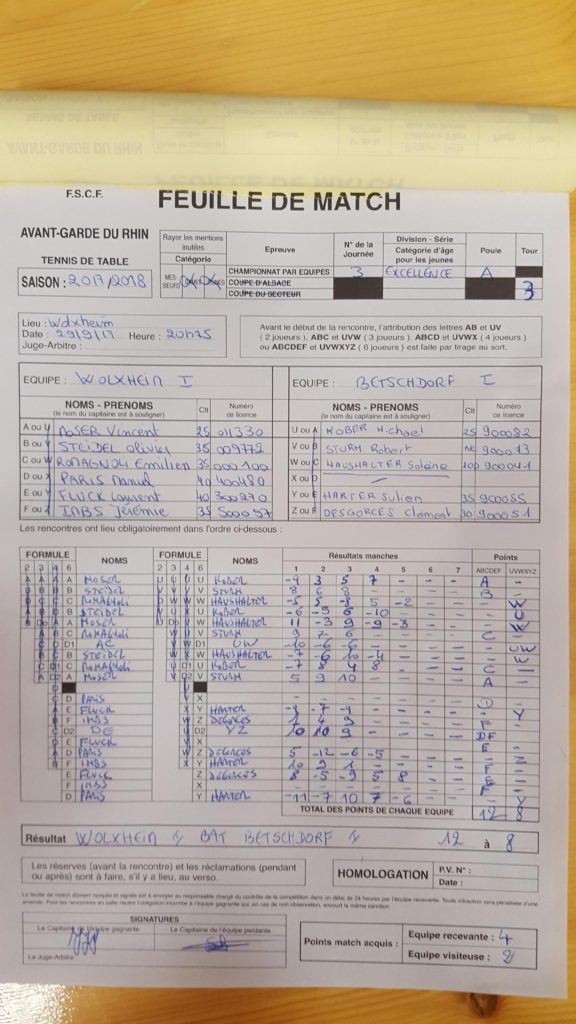 F.S.C.F.
FEUILLE DE MATCH
AVANT-GARDE DU RHIN
TENNIS DE TABLE
SAISON : 2017/2018
Rayer les mentions inutiles
Catégorie
MESSIEURS
Epreuve
N° de la Journée
Division - Série
Catégorie d'âge pour les jeunes
Poule
Tour
CHAMPIONNAT PAR EQUIPES 3 EXCELLENCE A
COUPE D'ALSACE 3
COUPE DU SECTEUR
Lieu : Wolxheim
Date : 29/9/17 Heure : 20h15
Juge-Arbitre :
Avant le début de la rencontre, l'attribution des lettres AB et UV
( 2 joueurs ), ABC et UVW ( 3 joueurs ), ABCD et UVWX ( 4 joueurs )
ou ABCDEF et UVWXYZ ( 6 joueurs ) est faite par tirage au sort.
EQUIPE : WOLXHEIM I
EQUIPE : BETSCHDORF I
NOMS - PRENOMS
(le nom du capitaine est à souligner)
Clt
Numéro de licence
NOMS - PRENOMS
(le nom du capitaine est à souligner)
Clt
Numéro de licence
A ou U MOSER Vincent 25 011330
U ou A KOBER Michael 25 900082
B ou V STEIDEL Olivier 35 009772
V ou B STURM Robert NC 900013
C ou W ROMAGNOLI Emilien 35 000100
W ou C HAUSHALTER Solène 100 900041
D ou X PARIS 40 400480
X ou D
E ou Y FLUCK Laurent 40 300270
Y ou E HARTER Julien 35 900055
F ou Z IMBS Jérémie 35 500057
Z ou F DESGORCES Clement 30 900051
Les rencontres ont lieu obligatoirement dans l'ordre ci-dessous :
FORMULE
NOMS
FORMULE
NOMS
Résultats manches
Points
2 3 4 6
2 3 4 6
1 2 3 4 5 6 7
ABCDEF UVWXYZ
A MOSER U KOBER -9 3 5 7 - - - A -
B STEIDEL V STURM 8 6 8 - - - - B -
C ROMAGNOLI W HAUSHALTER -5 5 -8 5 -2 - - - W
B STEIDEL U KOBER -6 -9 6 -10 - - - - U
A MOSER W HAUSHALTER 11 -3 9 -9 -3 - - - W
C ROMAGNOLI V STURM 9 7 6 - - - - C -
D1 AC D1 UW -10 -6 -6 - - - - - UW
B STEIDEL W HAUSHALTER -7 -6 10 -4 - - - - W
C ROMAGNOLI U KOBER -7 8 4 8 - - - C -
A MOSER V STURM 5 9 10 - - - - A -
D PARIS X - - - - - - - D -
E FLUCK Y HARTER -9 -7 -9 - - - - - Y
F IMBS Z DEGORCES 1 4 9 - - - - F -
D2 DE D2 YZ 10 10 9 - - - - DF -
E FLUCK X - - - - - - - E -
D PARIS Z DEGORCES 5 -12 -6 -5 - - - - Z
F IMBS Y HARTER 10 9 1 - - - - F -
E FLUCK Z DEGORCES 8 -5 -9 5 8 - - E -
F IMBS X - - - - - - - F -
D PARIS Y HARTER -11 -7 10 7 -6 - - - Y
TOTAL DES POINTS DE CHAQUE EQUIPE 12 8
Résultat WOLXHEIM 1 BAT BETSCHDORF 1 12 à 8
Les réserves (avant la rencontre) et les réclamations (pendant
ou après) sont à faire, s'il y a lieu, au verso.
HOMOLOGATION
P.V. N° :
Date :
La feuille de match dûment remplie et signée est à envoyer au responsable chargé du contrôle de la compétition dans un délai de 24 heures par l'équipe recevante. Toute infraction sera pénalisée d'une
amende. Pour les rencontres en salle neutre l'obligation incombe à l'équipe gagnante qui, en cas de non-observation, encourt la même sanction.
SIGNATURES
Le Capitaine de l'équipe gagnante
Le Capitaine de l'équipe perdante
Le Juge-Arbitre
Points match acquis :
Equipe recevante : 4
Equipe visiteuse : 2